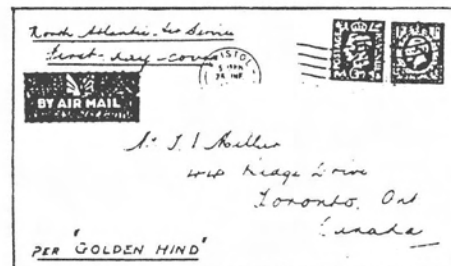 North Atlantic Air Service
First-day-cover
BRISTOL
BY AIR MAIL
Ridge Drive
Toronto, Ont
Canada
PER "GOLDEN HIND"